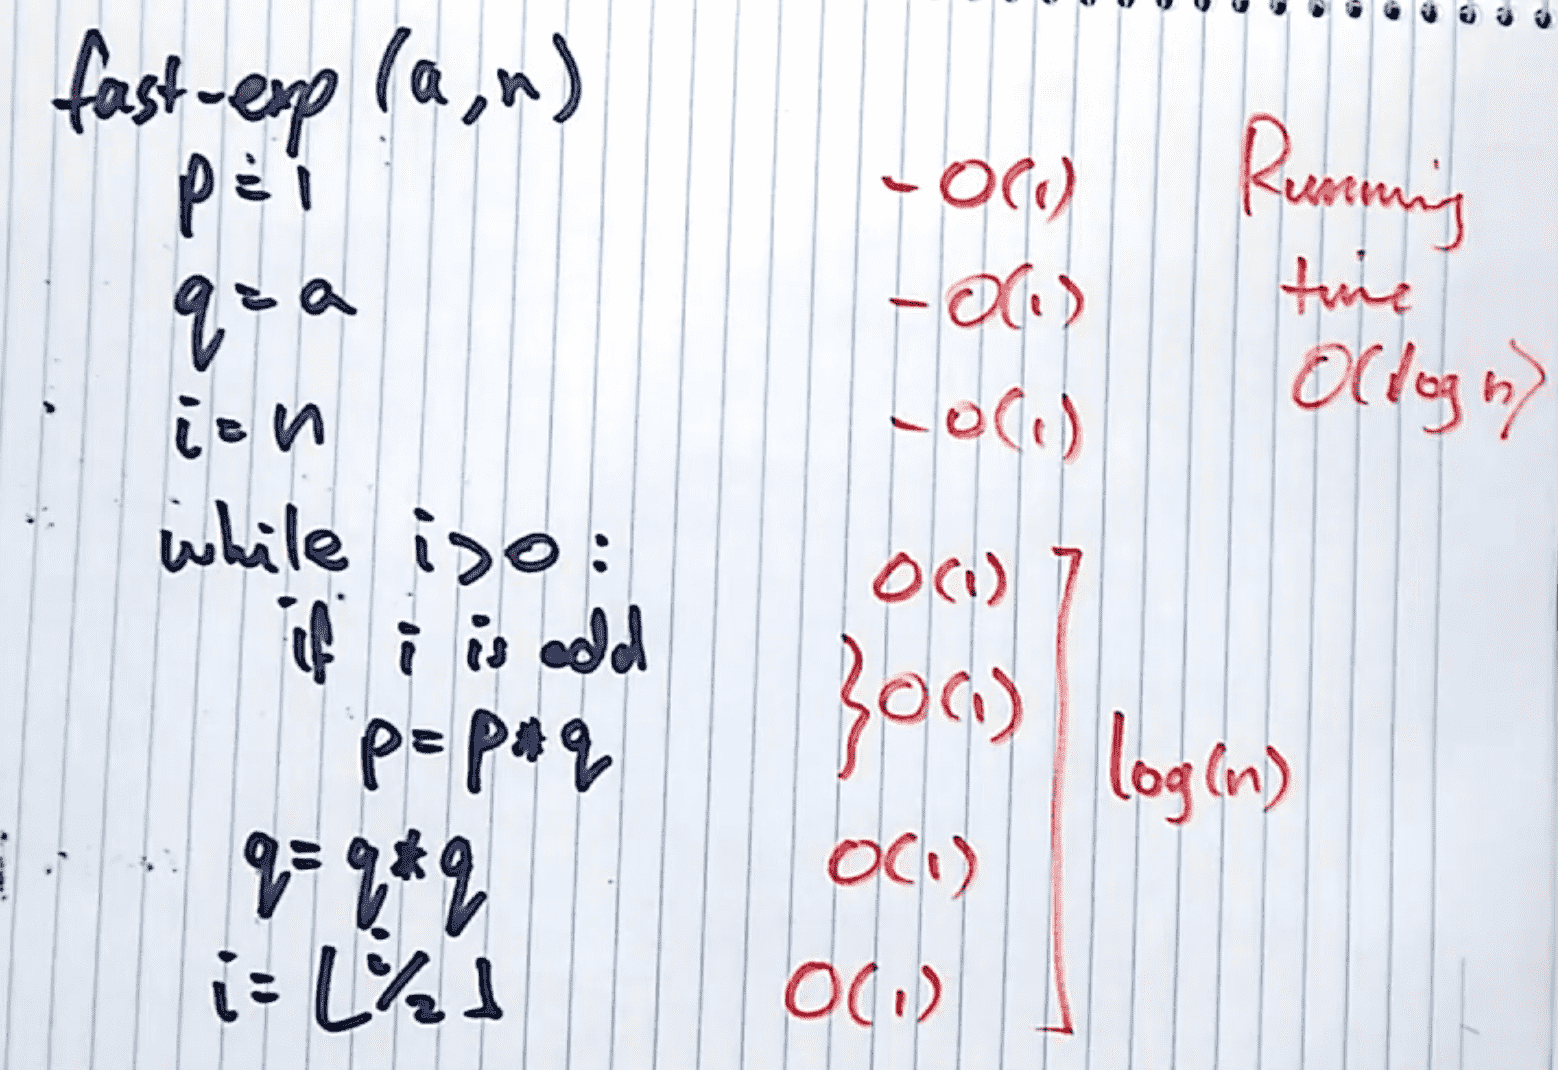 fast-exp (a,n)
p = 1 - O(1)
q = a - O(1)
i = n - O(1)
while i>0 : O(1)
if i is odd
p = p * q } O(1)
q = q * q O(1)
i = ⌊i/2⌋ O(1)
] log(n)
Running
time
O(log n)